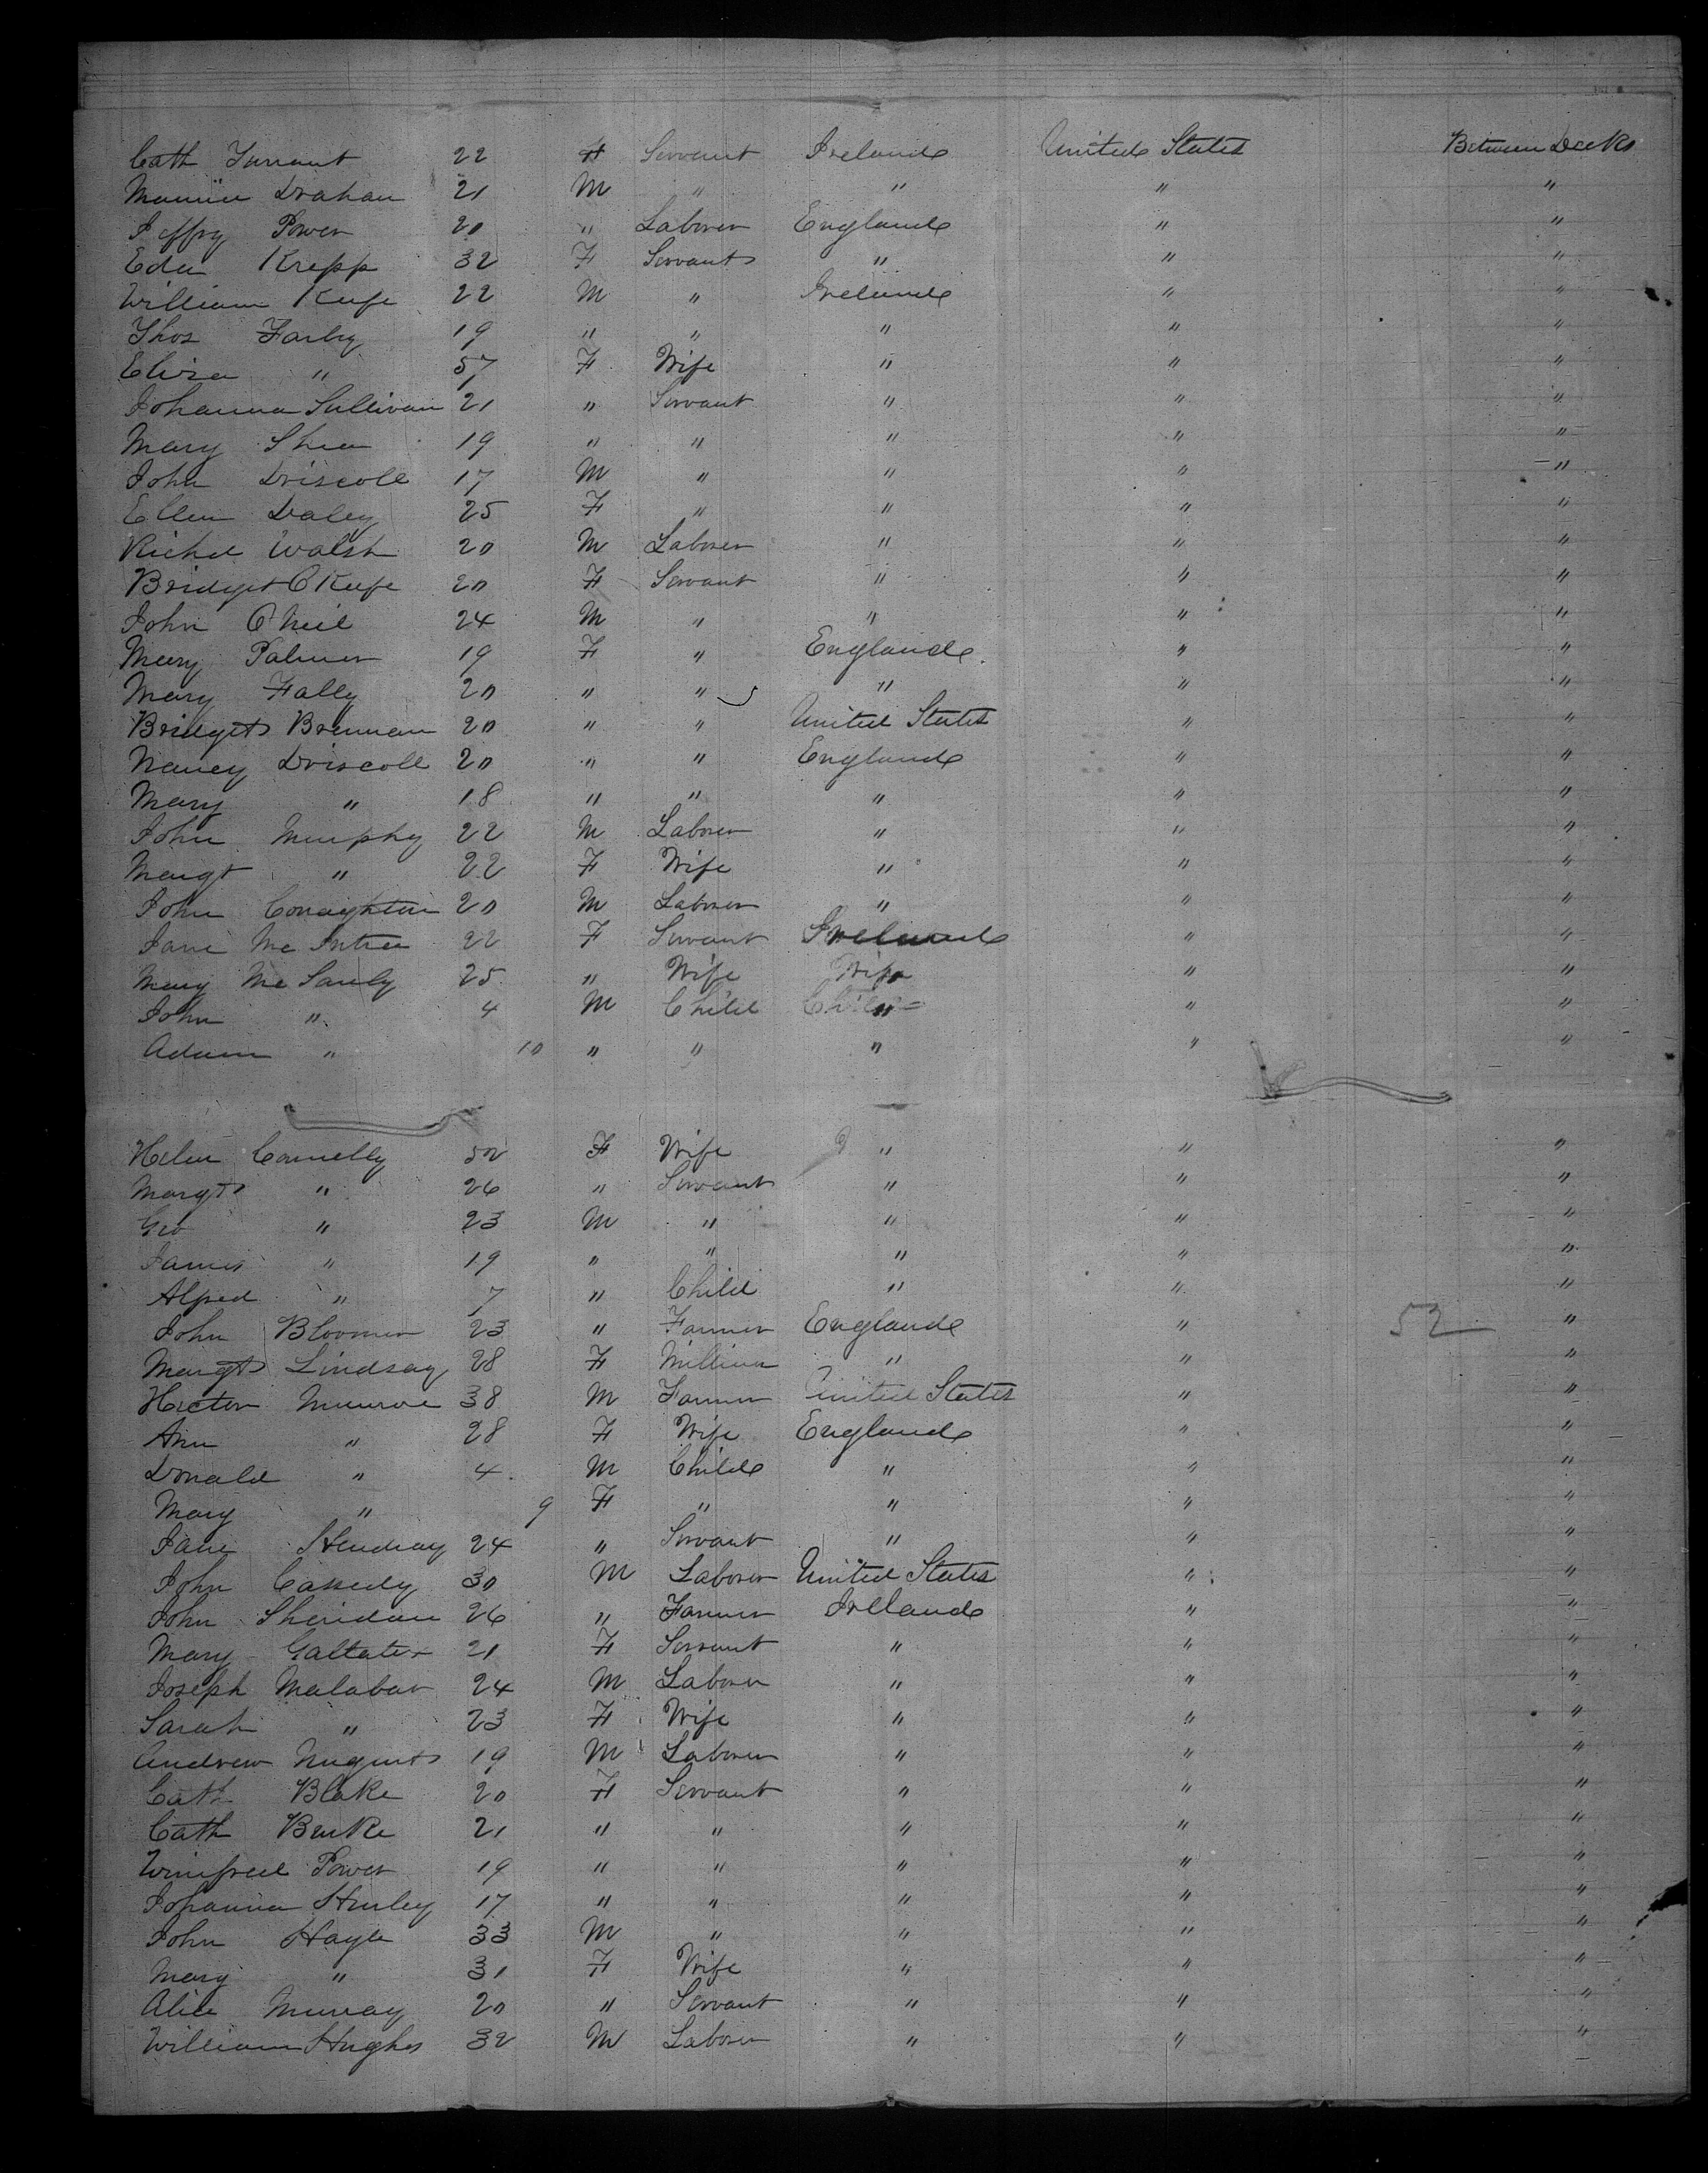 Cath Turrant 22 F Servant Ireland United States Between Decks
Maurice Drahan 21 M " " " "
Jeffry Power 20 " Laborer England " "
Eden Krepp 32 F Servant " " "
William Keefe 22 M " Ireland " "
Thos Farley 19 " " " " "
Eliza " 57 F Wife " " "
Johanna Sullivan 21 " Servant " " "
Mary Shea 19 " " " " "
John Driscoll 17 M " " " "
Ellen Daley 25 F " " " "
Richd Walsh 20 M Laborer " " "
Bridget O Keefe 20 F Servant " " "
John O Neil 24 M " " " "
Mary Palmer 19 F " England " "
Mary Fally 20 " " " " "
Bridget Brennan 20 " " United States " "
Nancy Driscoll 20 " " England " "
Mary " 18 " " " " "
John Murphy 22 M Laborer " " "
Margt " 22 F Wife " " "
John Conaughton 20 M Laborer " " "
Jane Mc Entree 22 F Servant Ireland " "
Mary Mc Sauly 25 " Wife " "
John " 4 M Child " " "
Adam " 10 " " " " "
Helen Connelly 52 F Wife " " "
Margt " 26 " Servant " " "
Geo " 23 M " " " "
James " 19 " " " " "
Alfred " 7 " Child " " "
John Bloomer 23 " Farmer England " 52 "
Margt Lindsay 28 F Milliner " " "
Hector Munroe 38 M Farmer United States " "
Ann " 28 F Wife England " "
Donald " 4 M Child " " "
Mary " 9 F " " " "
Jane Hendray 24 " Servant " " "
John Cassedy 30 M Laborer United States " "
John Sheridan 26 " Farmer Ireland " "
Mary 21 F Servant " " "
Joseph Malabar 24 M Laborer " " "
Sarah " 23 F Wife " " "
Andrew Nugent 19 M Laborer " " "
Cath Blake 20 F Servant " " "
Cath Burke 21 " " " " "
Winifred Power 19 " " " " "
Johanna Hurley 17 " " " " "
John Hayle 33 M " " " "
Mary " 31 F Wife " " "
Alice Murray 20 " Servant " " "
William Hughes 32 M Laborer " " "